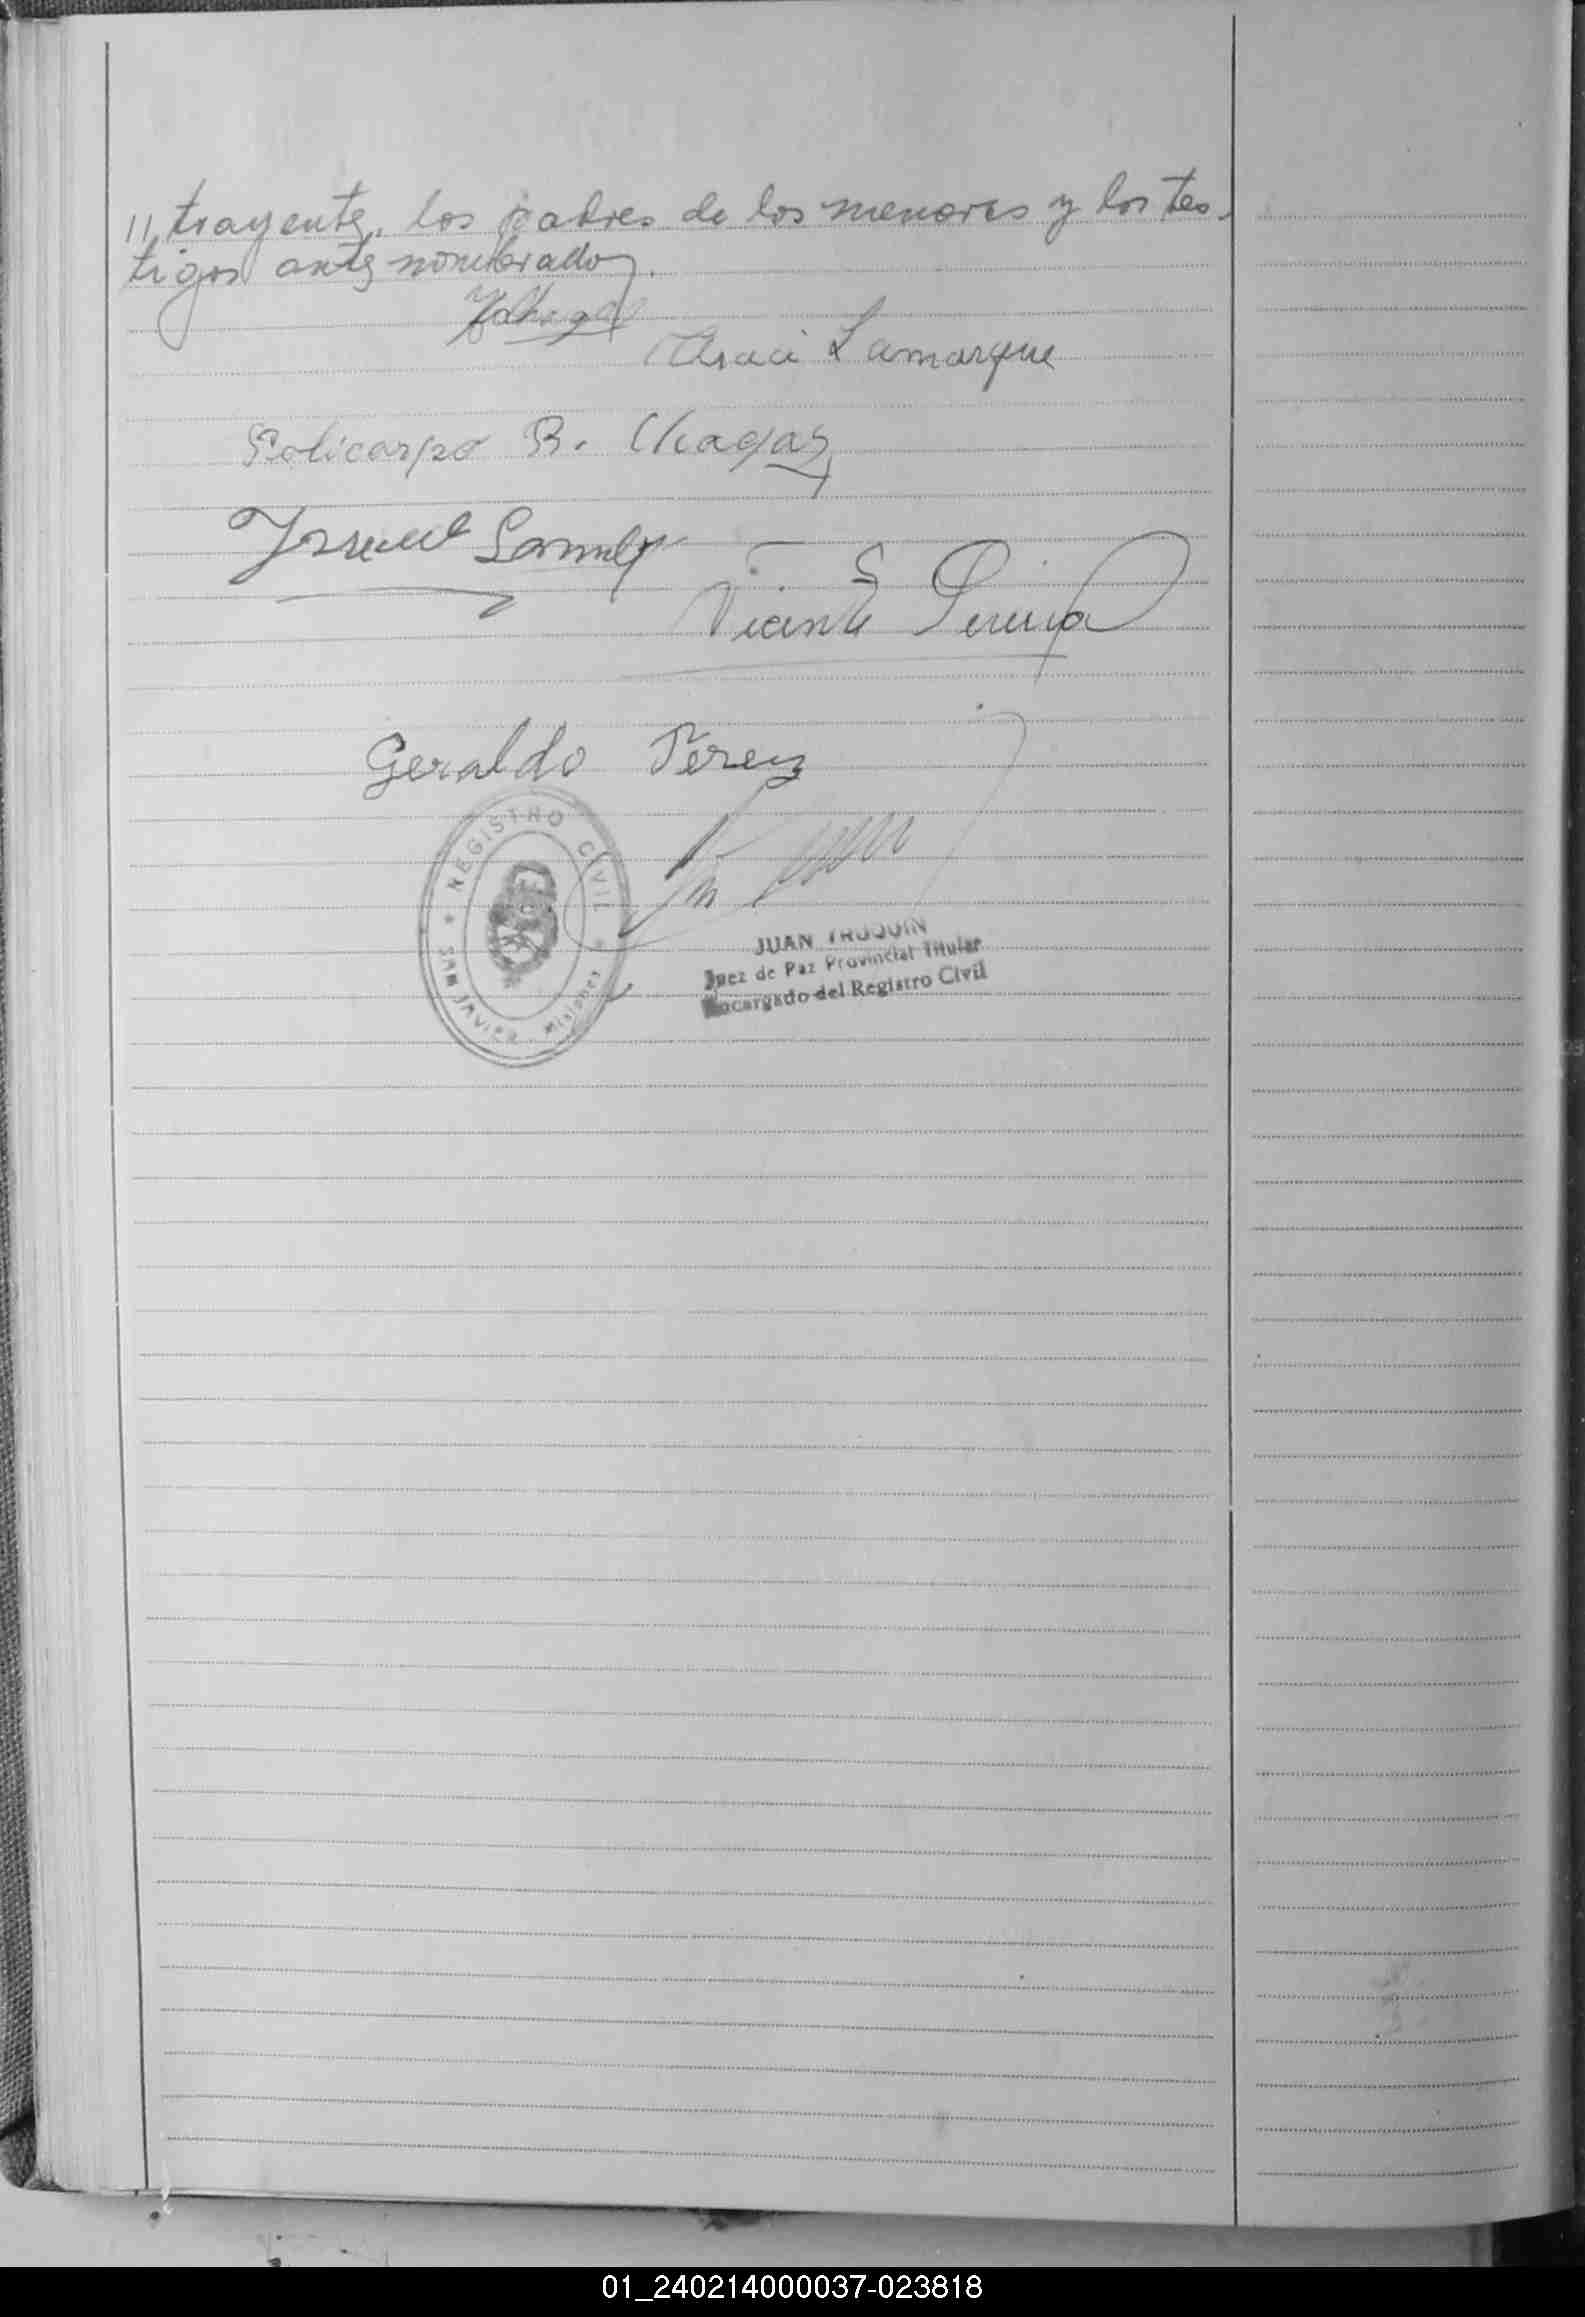 // trayente, los padres de los menores y los tes-
tigos antes nombrados.
Araci Lamarque
Policarpo R. Chagas
Vicente Pereira
Geraldo Perez
REGISTRO CIVIL
SAN JAVIER - Misiones
JUAN TRUQUIN
Juez de Paz Provincial Titular
Encargado del Registro Civil
01_240214000037-023818